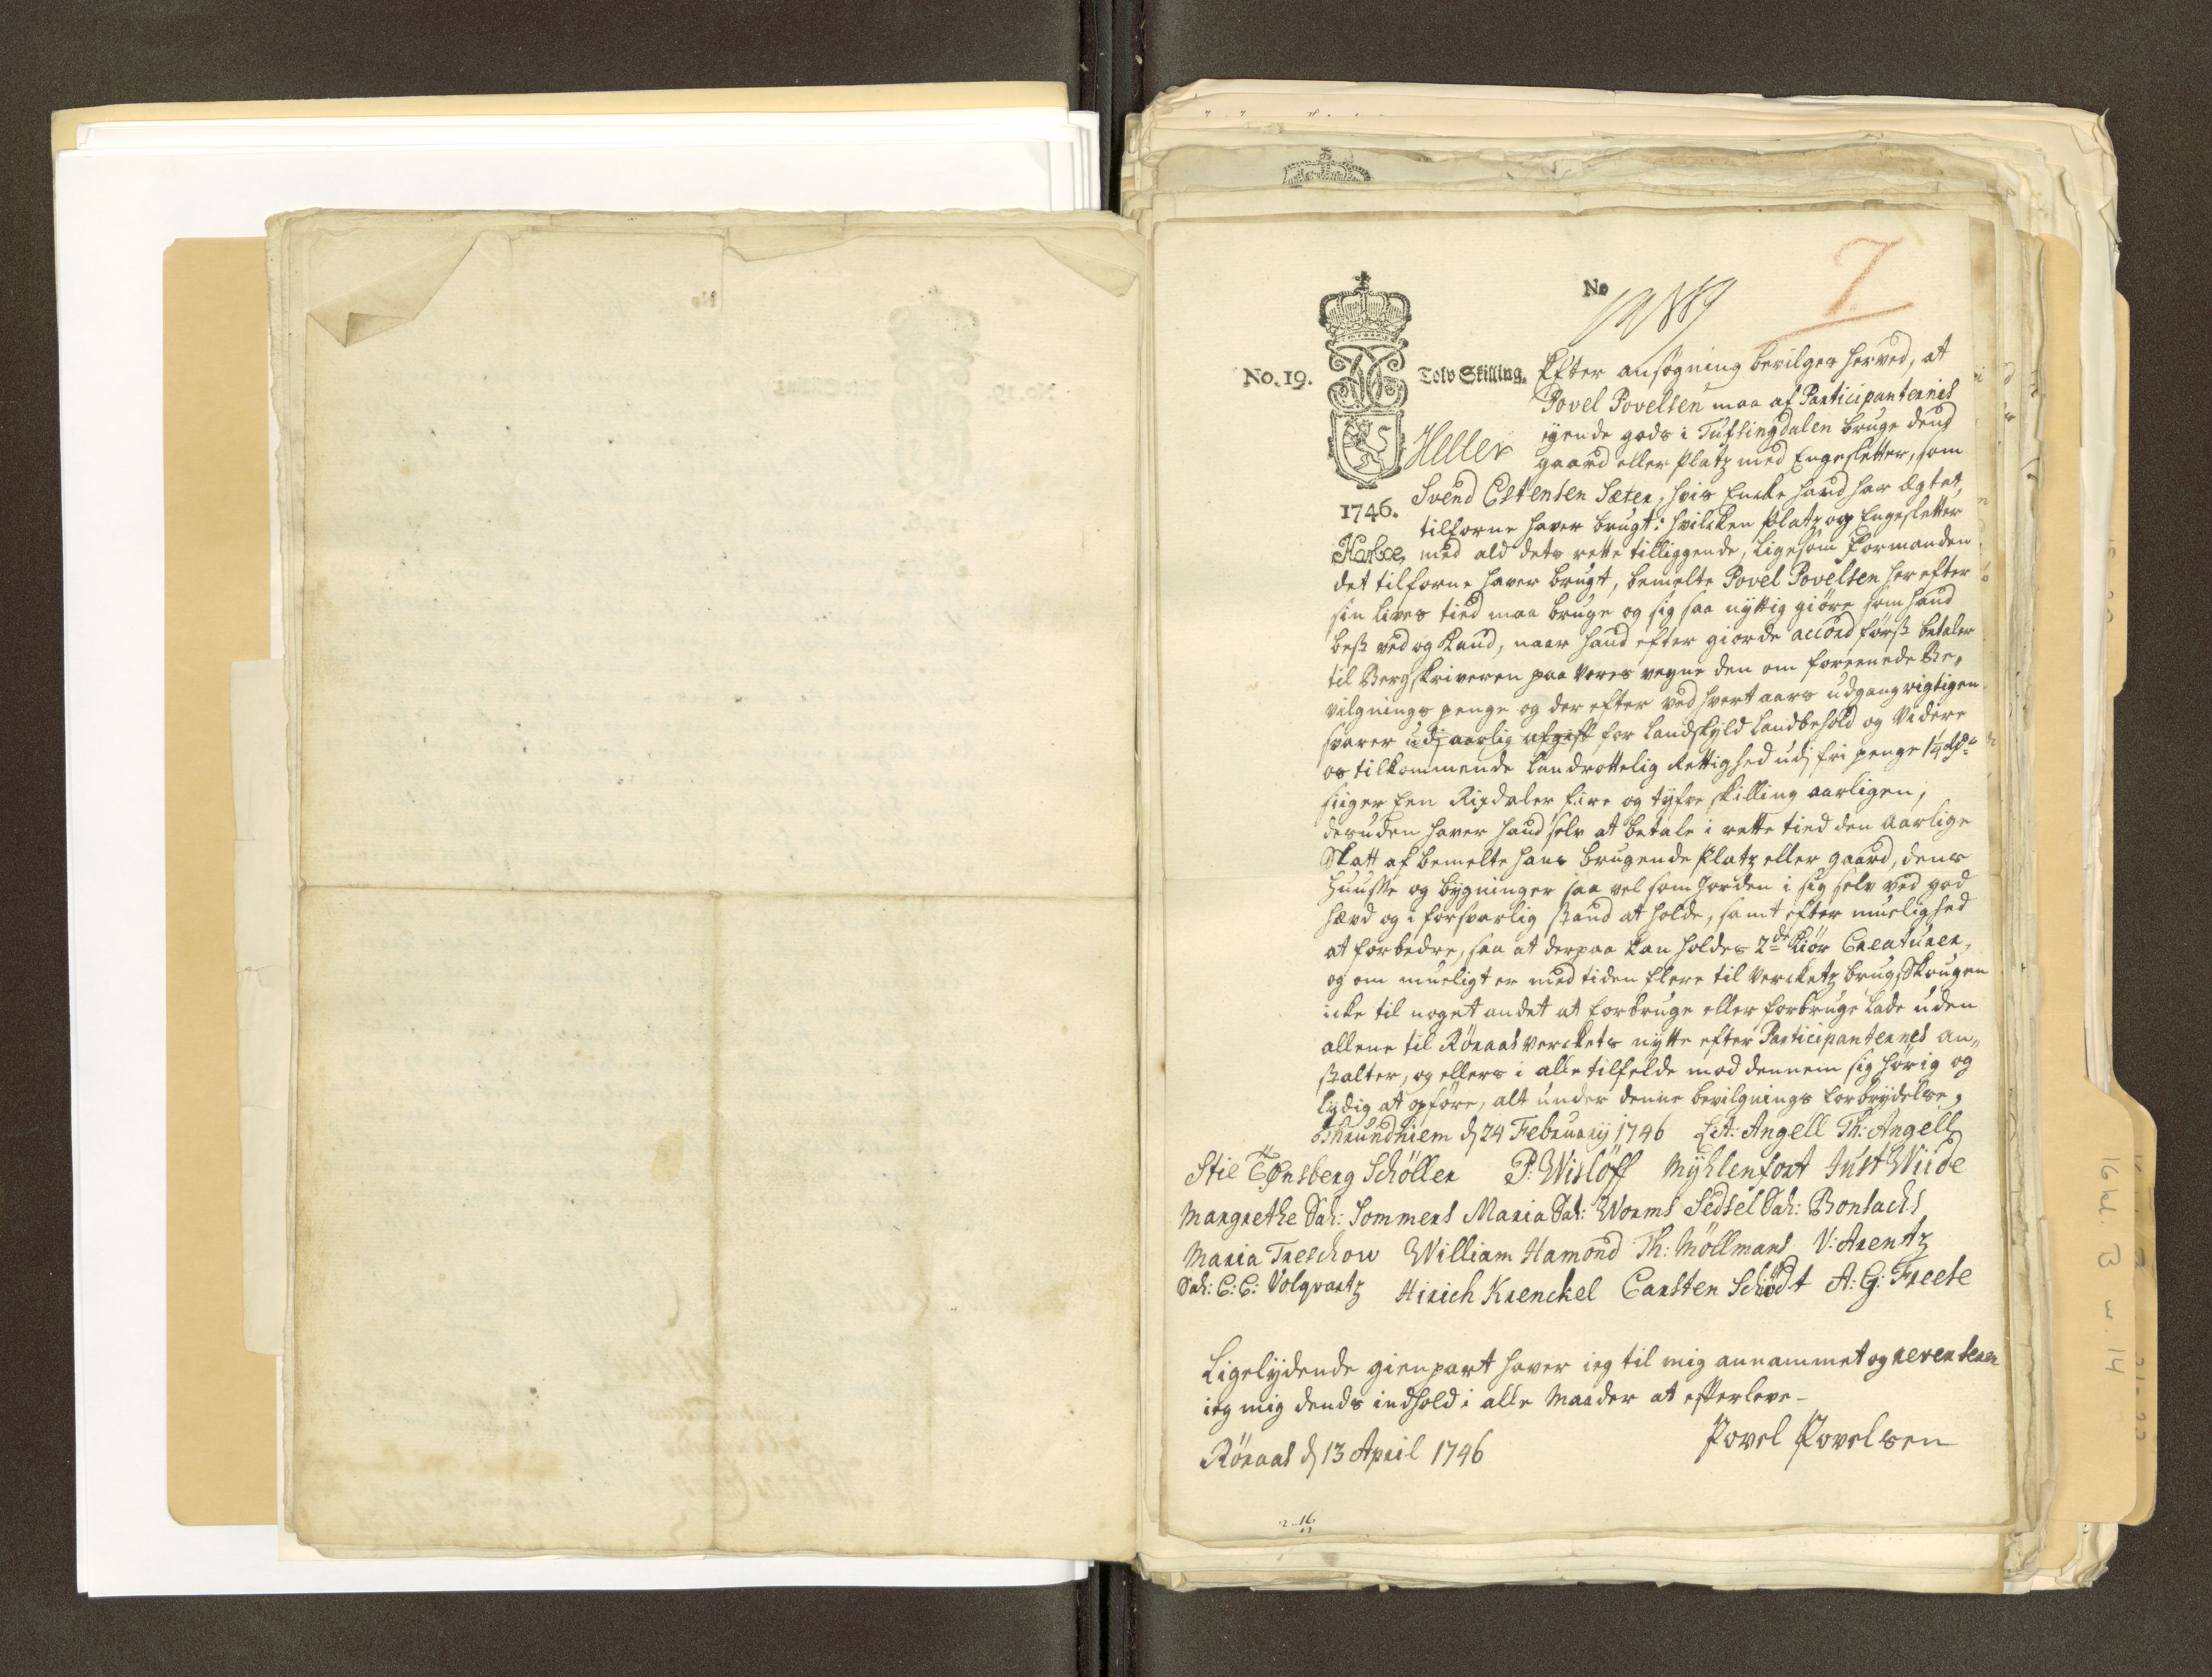 No
7.
No. 19.
Tolv Skilling.
Heller
1746.
Harboe
Efter ansøgning bevilges herved, at
Povel Povelsen maa af Participanternes
eyende gods i Tufsingdalen bruge dend
gaard eller Platz med Engesletter, som
Svend Estensen Sæter, hvis Encke hand har ægtet,
tilforne haver brugt: hvilcken Platz og Engesletter
med ald dets rette tilliggende, ligesom formanden
det tilforne haver brugt, bemelte Povel Povelsen herefter
sin lives tied maa bruge og sig saa nyttig giöre som hand
best ved og kand, naar hand efter giorde accord først betaler
til Bergskriveren paa vores vegne den om foreenede Be-
vilgnings penge og der efter ved hvert aars udgang rigtigen
svarer udj aarlig afgift for Landskyld Landbehold og Videre
os tilkommende Landrottelig Rettighed udj fri penge 1¼ Rdr
siiger Een Rixdaler fire og tyfve skilling aarligen,
desuden haver hand selv at betale i rette tied den aarlige
Skatt af bemelte hans brugende Platz eller gaard, dens
Huusse og bygninger saa vel som Jorden i sig selv ved god
hævd og i forsvarlig stand at holde, samt efter muelighed
at forbedre, saa at derpaa kan holdes 2de Kiör Creaturer,
og om mueligt er med tiden flere til Verckets brug, Skougen
icke til noget andet at forbruge eller forbruge lade uden
allene til Röraas Verckets nytte efter Participanternes an„
stalter, og ellers i alle tilfelde mod dennem sig hörig og
lydig at opföre, alt under denne bevilgnings forbrydelse,
Thrundhiem d 24 February 1746 L: A: Angell Th: Angell
Stie Tønsberg Schöller P: Wislöff Mÿhlenfort Just Wiide
Margrethe Sal: Sommers Maria Sal: Worms Sedsel Sal: Bonsachs
Maria Treschow William Hamond Th: Möllmans V: Arentz
Sal: C: C: Volqvartz Hirich Krenckel Carsten Schiödt A: G: Freese
Ligelydende gienpart haver ieg til mig annammet og reverserer
ieg mig dends indhold i alle Maader at efterleve-
Röraas d 13 April 1746
Povel Povelsen
16 kl. B nr. 14